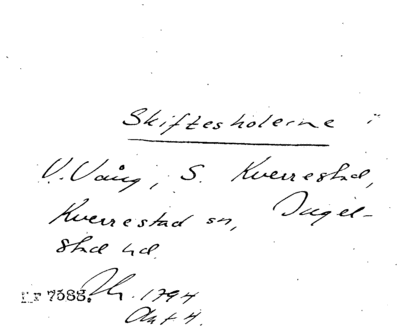 Skiftesholerne i
V. Vång, S. Kverrestad,
Kverrestad sn, Ingel-
stad hd.
LUF 7383. Jh. 1794
Akt 4.